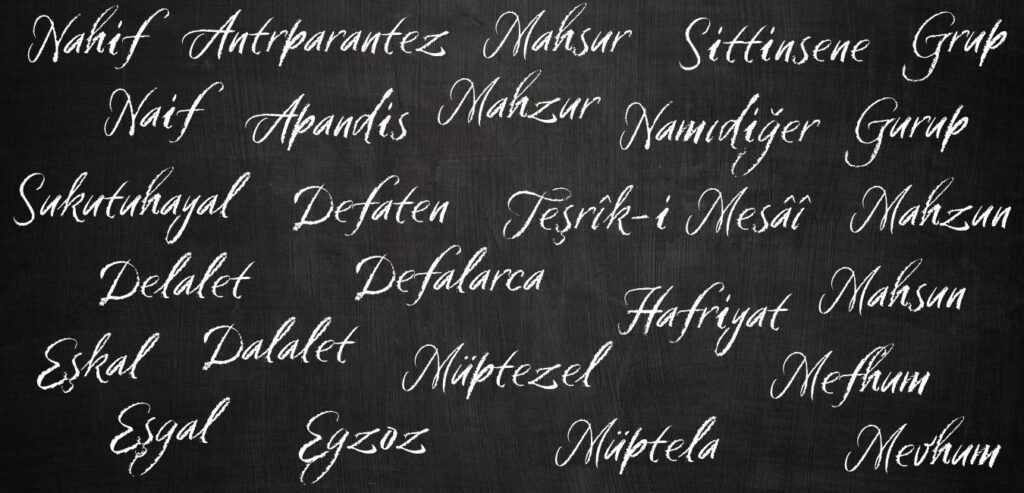 Nahif Antrparantez Mahsur Sittinsene Grup
Naif Apandis Mahzur Namıdiğer Gurup
Sukutuhayal Defaten Teşrîk-i Mesâî Mahzun
Delalet Defalarca Hafriyat Mahsun
Eşkal Dalalet Müptezel Mefhum
Eşgal Egzoz Müptela Mevhum